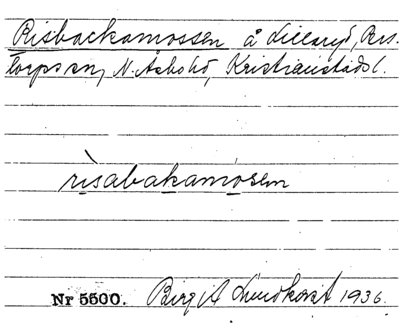 Risbackamossen å Lillaryd, Ris-
torps sn, N. Åsbo hd, Kristianstads l.
rìsabakamosen
Nr 5500. Birgit Lundkvist 1936.